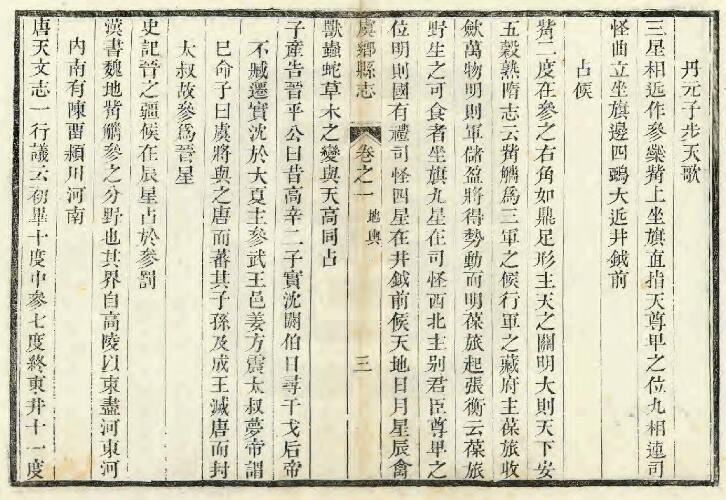 丹元子步天歌
三星相近作參蘂觜上坐旗直指天尊卑之位九相連司
怪曲立坐旗邊四鴉大近井鉞前
占候
觜二度在參之右角如鼎足形主天之關明大則天下安
五穀熟隋志云觜觿爲三軍之候行軍之藏府主葆旅收
斂萬物明則軍儲盈將得勢動而明葆旅起張衡云葆旅
野生之可食者坐旗九星在司怪西北主别君臣尊卑之
位明則國有禮司怪四星在井鉞前候天地日月星辰禽
虞鄉縣志 卷之一 地輿 三
獸蟲蛇草木之變與天高同占
子產告晉平公曰昔高辛二子實沈閼伯日尋干戈后帝
不臧遷實沈於大夏主參武王邑姜方震太叔夢帝謂
已命子曰虞將與之唐而蕃其子孫及成王滅唐而封
太叔故參爲晉星
史記晉之疆候在辰星占於參罰
漢書魏地觜觿參之分野也其界自高陵以東盡河東河
內南有陳畱潁川河南
唐天文志一行議云初畢十度中參七度終東井十一度